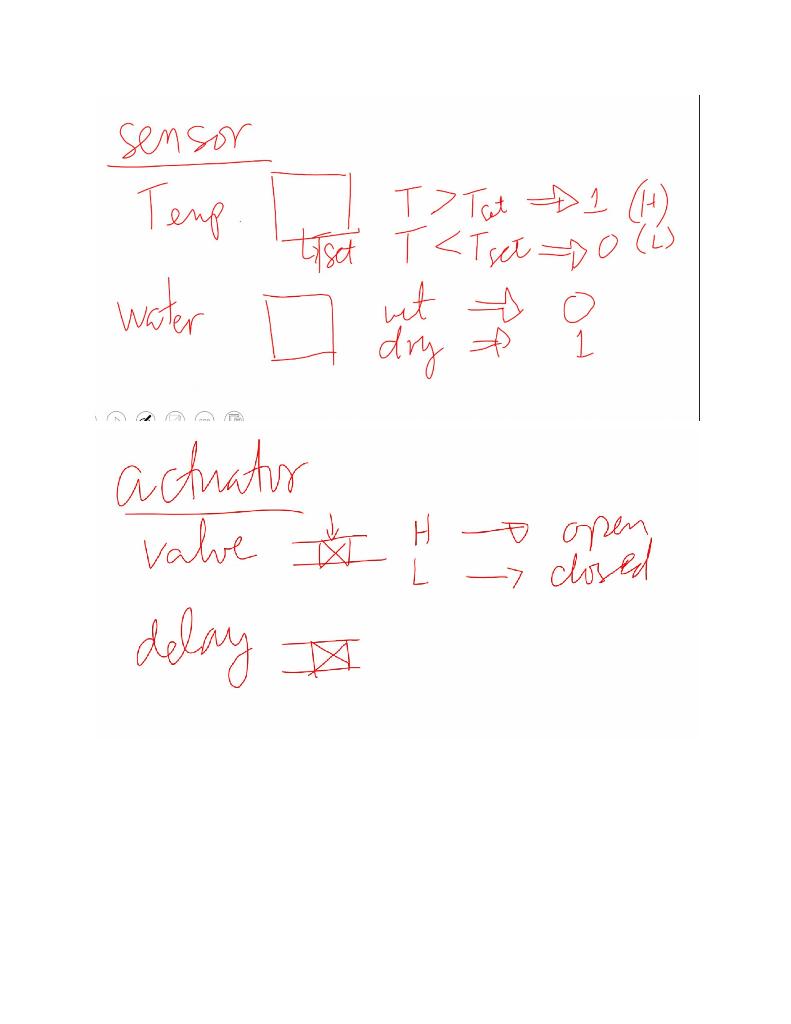 sensor
Temp. T > Tset ⇒ 1 (H)
Tset T < Tset ⇒ 0 (L)
water wet ⇒ 0
dry ⇒ 1
actuator
valve H → open
L → closed
delay